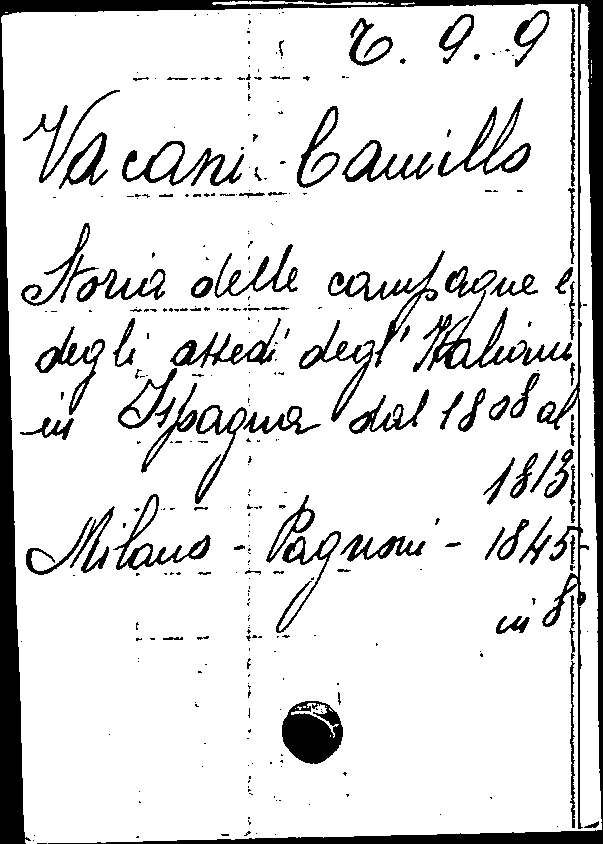 7. 9. 9
Vacani Camillo
Storia delle campagne e
degli assedi degl' Italiani
in Ispagna dal 1808 al
1813
Milano - Pagnoni - 1845
in 8°